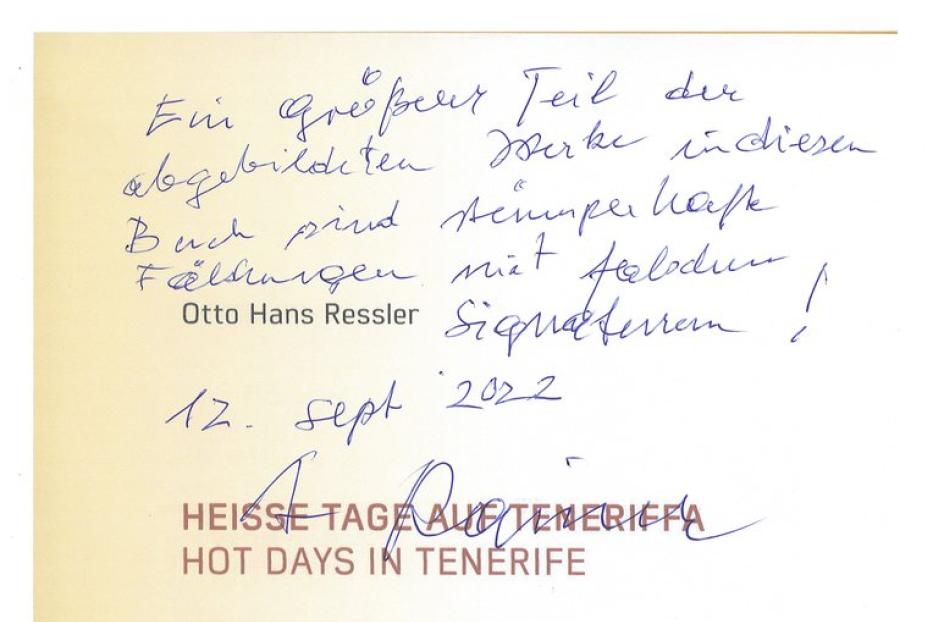 Ein Größerer Teil der
abgebildeten Werke in diesen
Buch sind stümperhafte
Fälschungen mit falschen
Otto Hans Ressler
Signaturen !
12. sept 2022
A Rainer
HEISSE TAGE AUF TENERIFFA
HOT DAYS IN TENERIFE